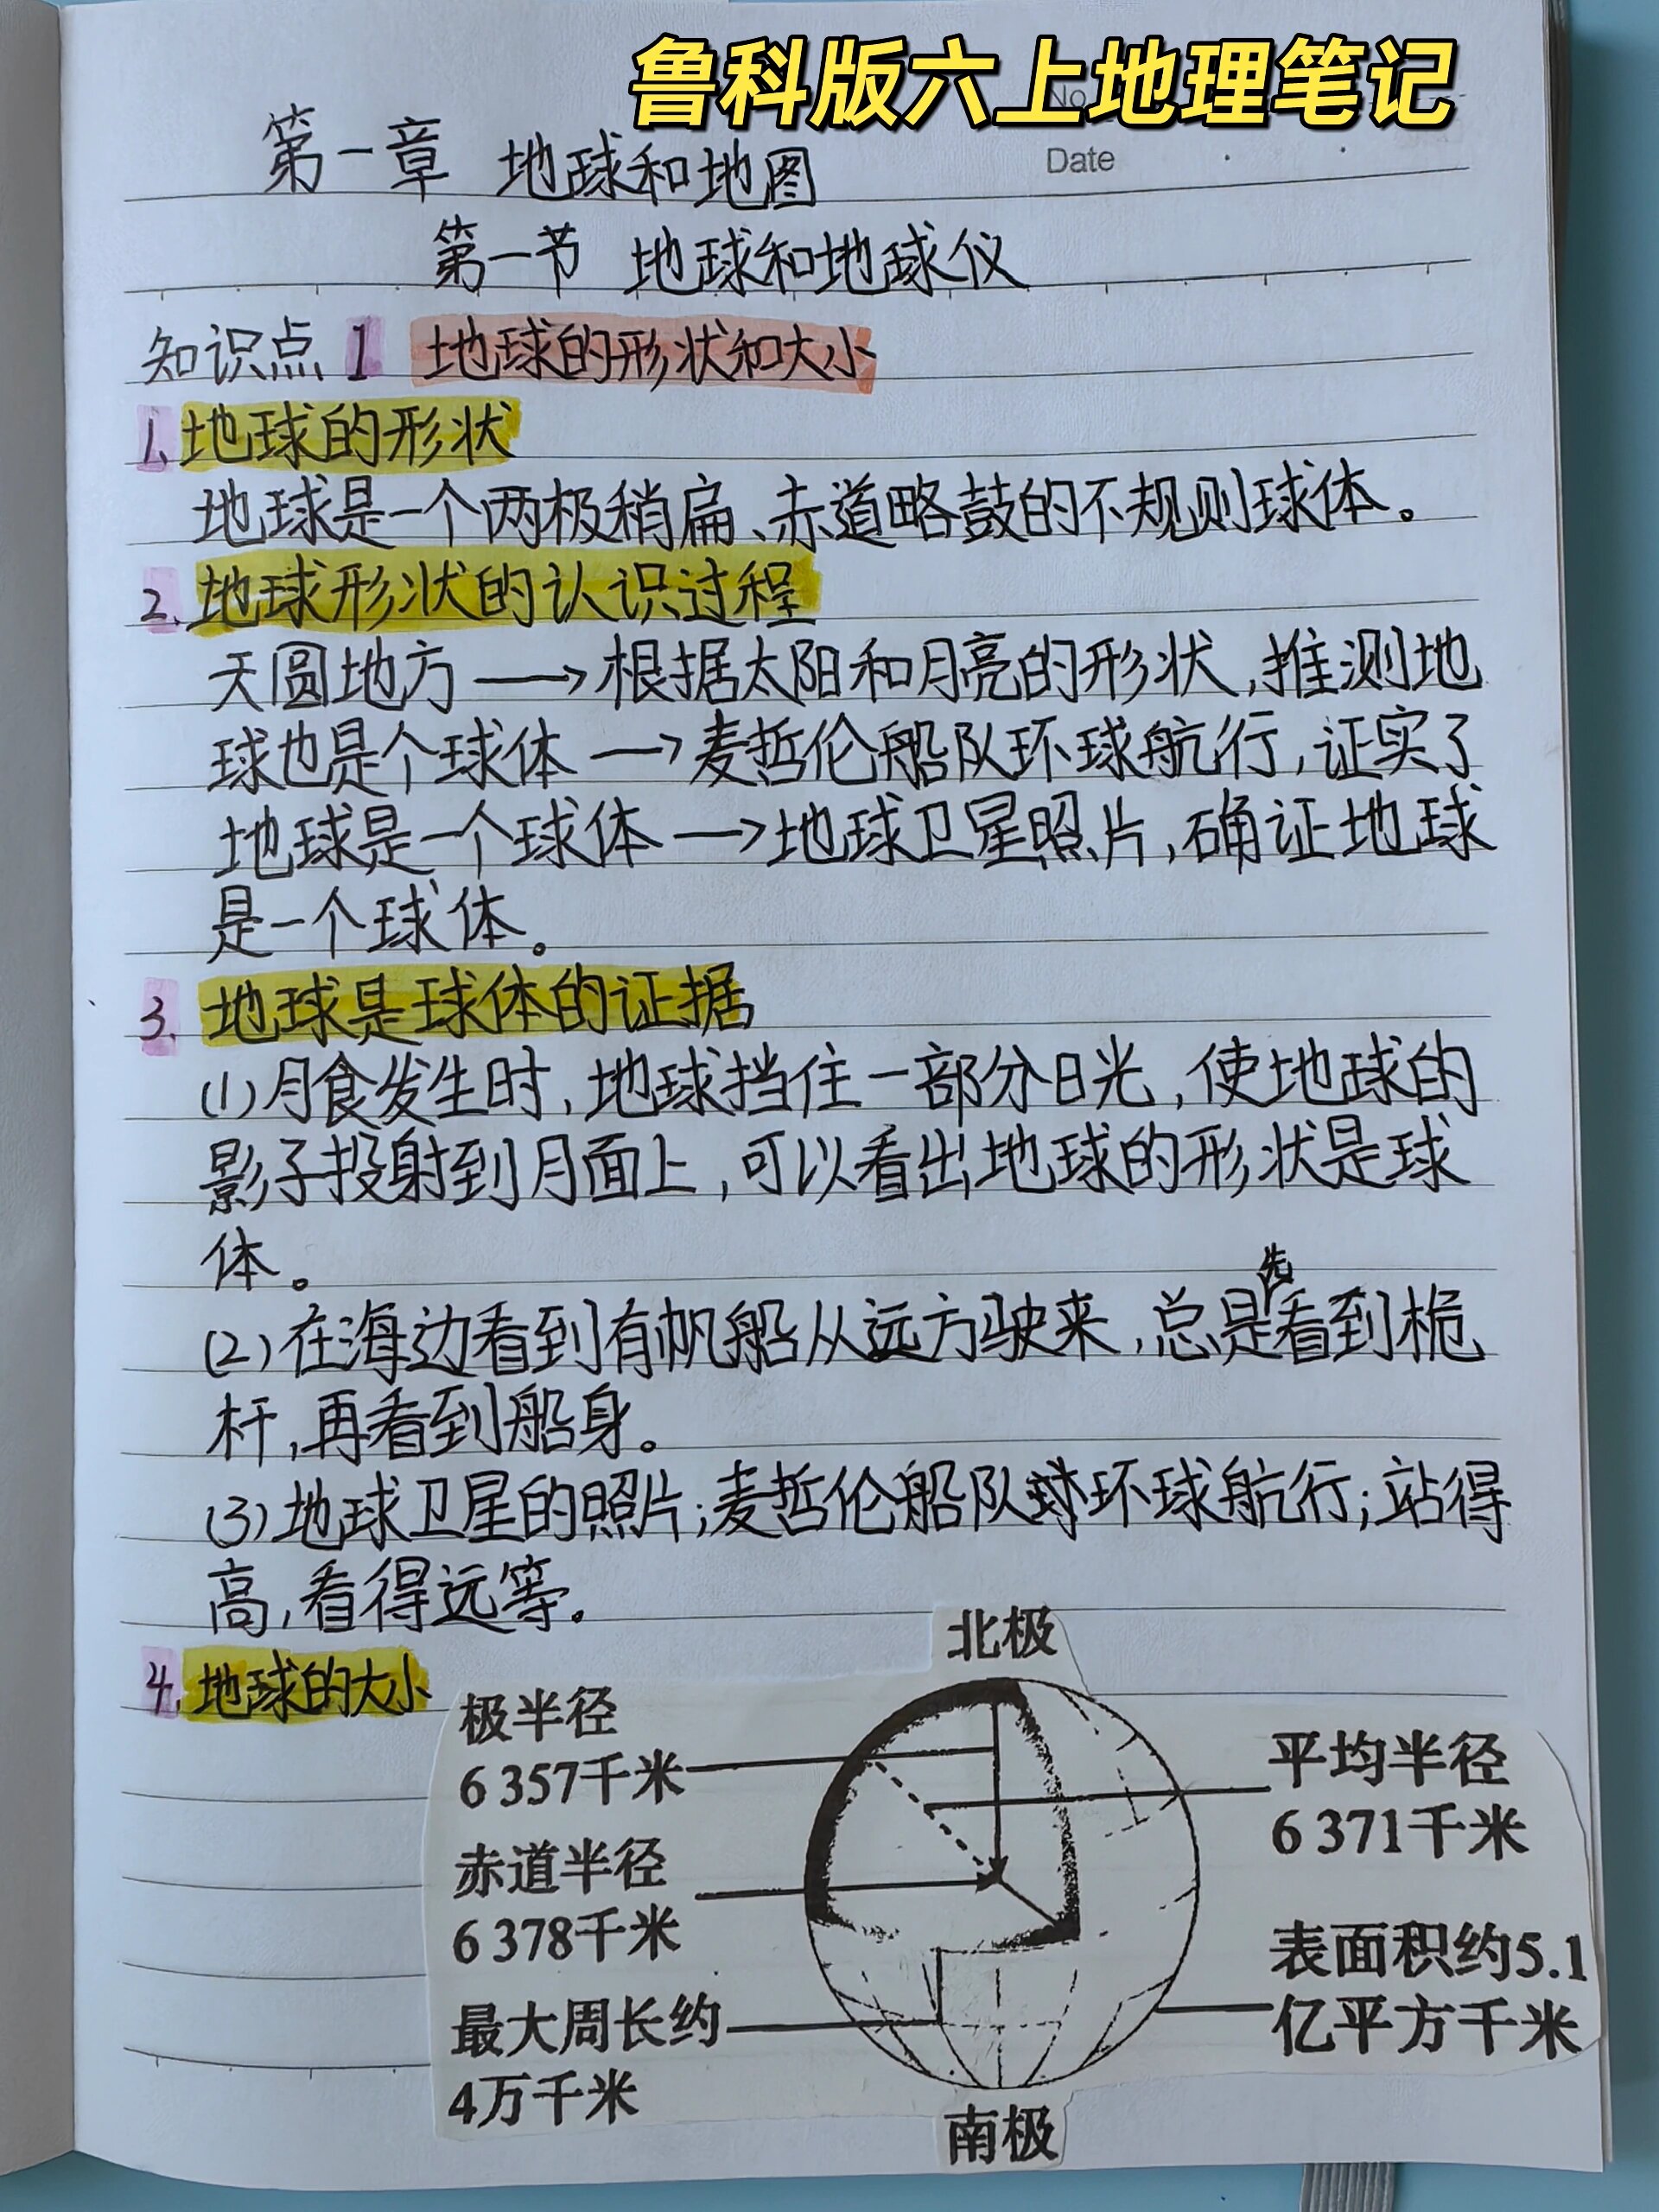 鲁科版六上地理笔记
No
Date
第一章 地球和地图
第一节 地球和地球仪
知识点 1 地球的形状和大小
1. 地球的形状
地球是一个两极稍扁、赤道略鼓的不规则球体。
2. 地球形状的认识过程
天圆地方 → 根据太阳和月亮的形状,推测地
球也是个球体 → 麦哲伦船队环球航行,证实了
地球是一个球体 → 地球卫星照片,确证地球
是一个球体。
3. 地球是球体的证据
(1)月食发生时,地球挡住一部分日光,使地球的
影子投射到月面上,可以看出地球的形状是球
体。
(2)在海边看到有帆船从远方驶来,总是先看到桅
杆,再看到船身。
(3)地球卫星的照片;麦哲伦船队环球航行;站得
高,看得远等。
4. 地球的大小
北极
极半径
6 357千米
平均半径
6 371千米
赤道半径
6 378千米
表面积约5.1
亿平方千米
最大周长约
4万千米
南极